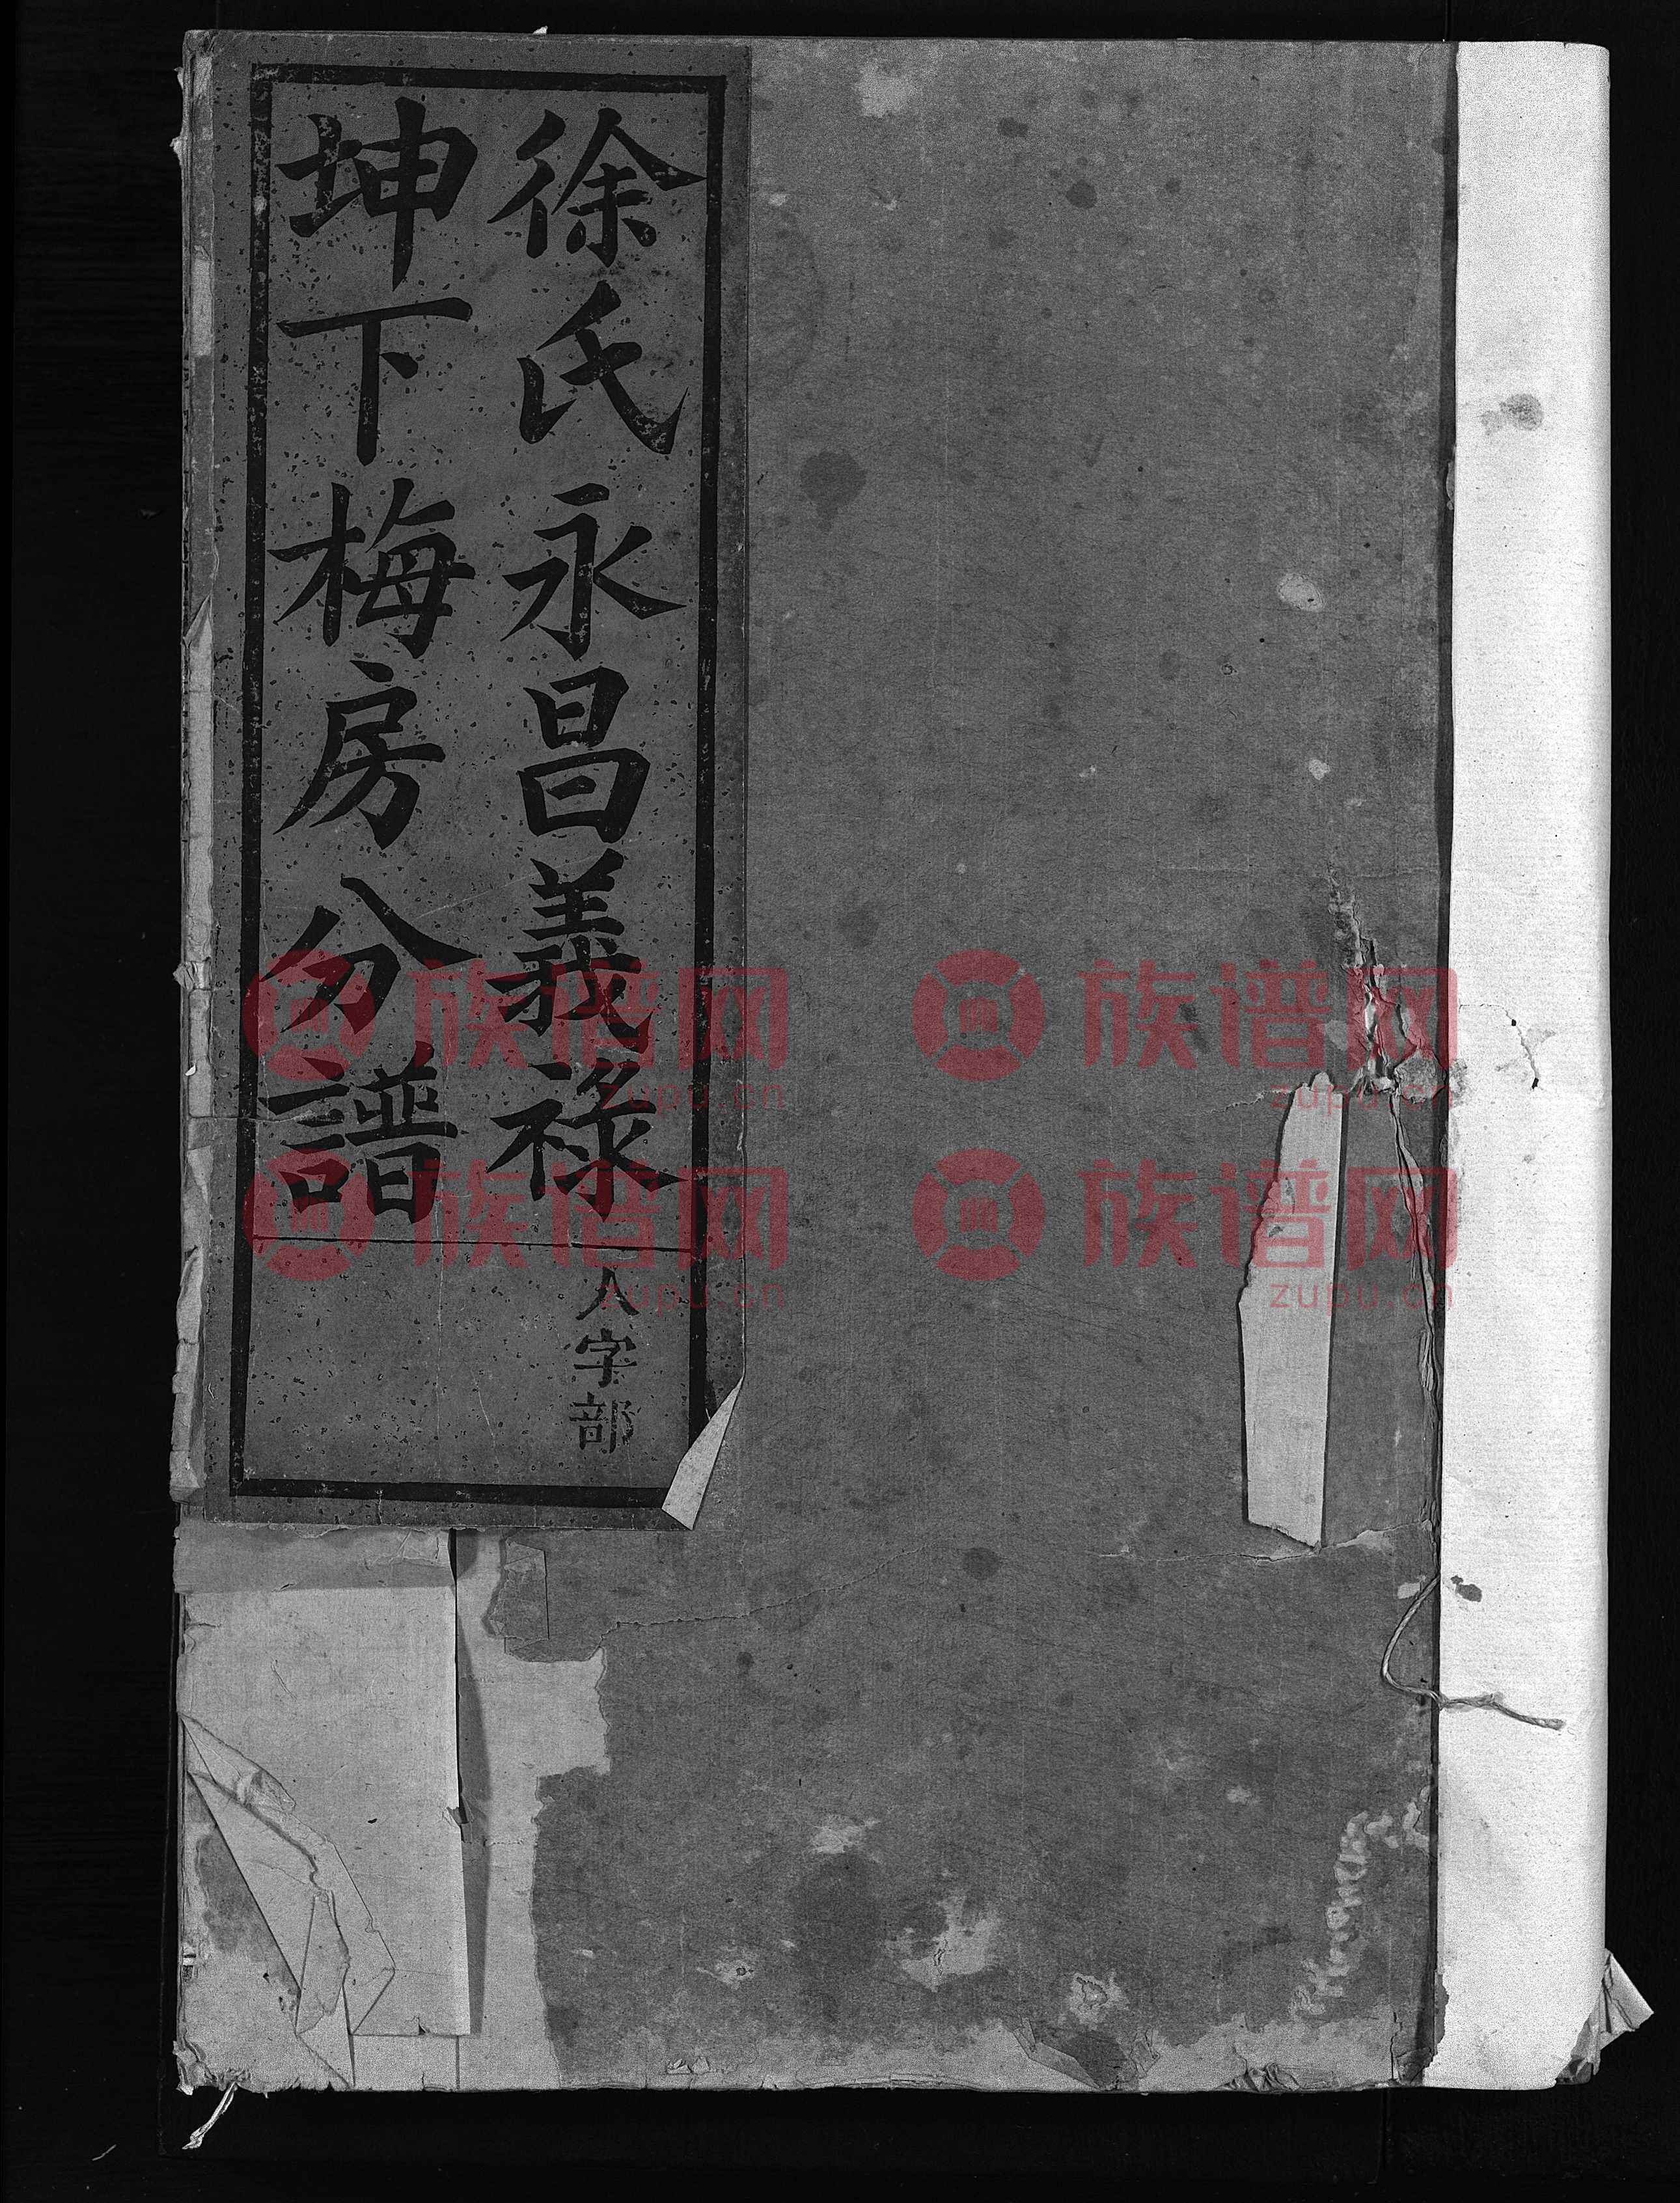 徐氏永昌義祿
坤下梅房分譜
人字部
族谱网
zupu.cn
族谱网
zupu.cn
族谱网
zupu.cn
族谱网
zupu.cn